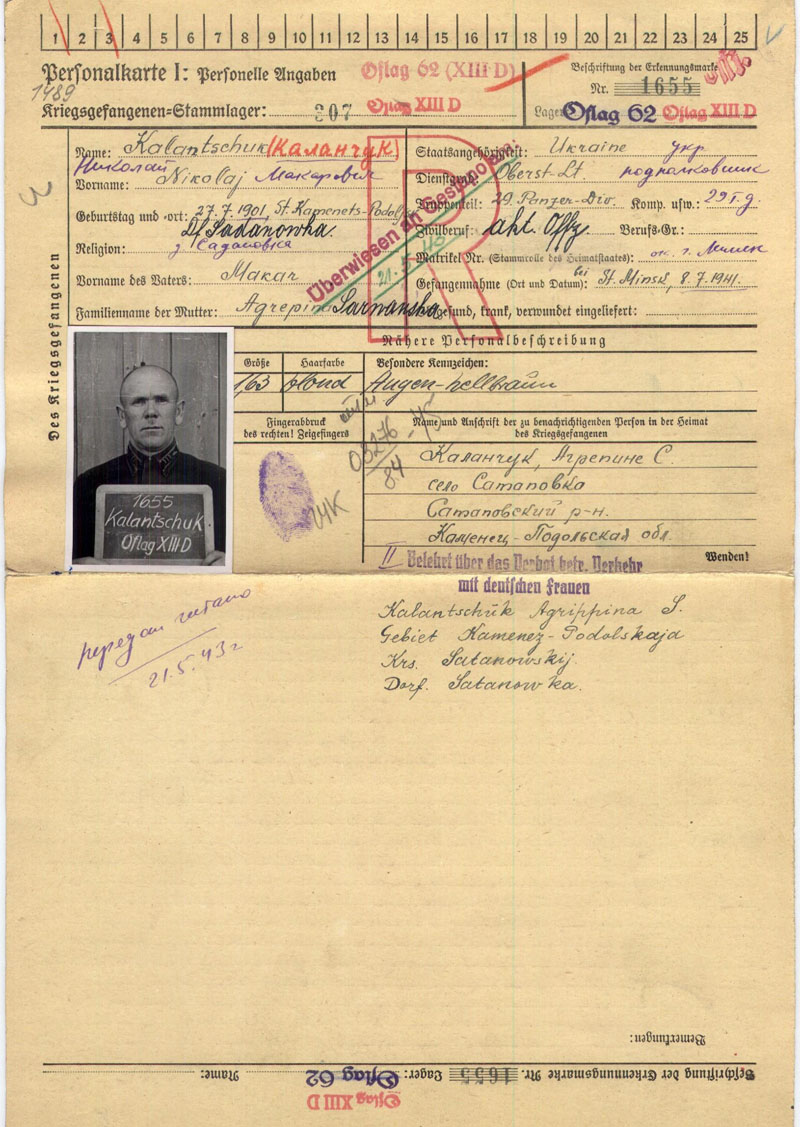 1 2 3 4 5 6 7 8 9 10 11 12 13 14 15 16 17 18 19 20 21 22 23 24 25
Personalkarte I: Personelle Angaben
Oflag 62 (XIII D)
Beschriftung der Erkennungsmarke
Nr. 1655
1489
Kriegsgefangenen=Stammlager: 307 Oflag XIII D
Lager: Oflag 62 Oflag XIII D
Des Kriegsgefangenen
Name: Kalantschuk (Каланчук)
Николай
Vorname: Nikolaj Макарович
Geburtstag und =ort: 27.7.1901, St. Kamenets-Podolsk
Df. Sadanowka.
Religion: д. Садановка
Vorname des Vaters: Makar
Familienname der Mutter: Agrepina Sarnanska
Staatsangehörigkeit: Ukraine укр
Dienstgrad: Oberst-Lt. подполковник
Truppenteil: 29. Panzer-Div. Komp. usw.: 29 т.д.
Zivilberuf: akt. Offz. Berufs-Gr.:
Matrikel Nr. (Stammrolle des Heimatstaates): ок. г. Минск
Gefangennahme (Ort und Datum): bei St. Minsk, 8.7.1941.
Gesund, krank, verwundet eingeliefert:
R
Überwiesen an Gestapo
21.5.
Nähere Personalbeschreibung
Größe
Haarfarbe
Besondere Kennzeichen:
163
blond
Augen-hellbraun
Fingerabdruck
des rechten! Zeigefingers
Name und Anschrift der zu benachrichtigenden Person in der Heimat
des Kriegsgefangenen
08276
84
Каланчук, Агрепине С.
село Сатановка
Сатановский р-н.
Каменец-Подольская обл.
Wenden!
1655
Kalantschuk
Oflag XIII D
II Belehrt über das Verbot betr. Verkehr
mit deutschen Frauen
Kalantschuk Agrippina S.
Gebiet Kamenez-Podolskaja
Krs. Satanowskij.
Dorf. Satanowka.
передан гестапо
21.5.43г
Bemerkungen:
Beschriftung der Erkennungsmarke Nr. 1655 Lager: Oflag 62 Name:
Oflag XIII D